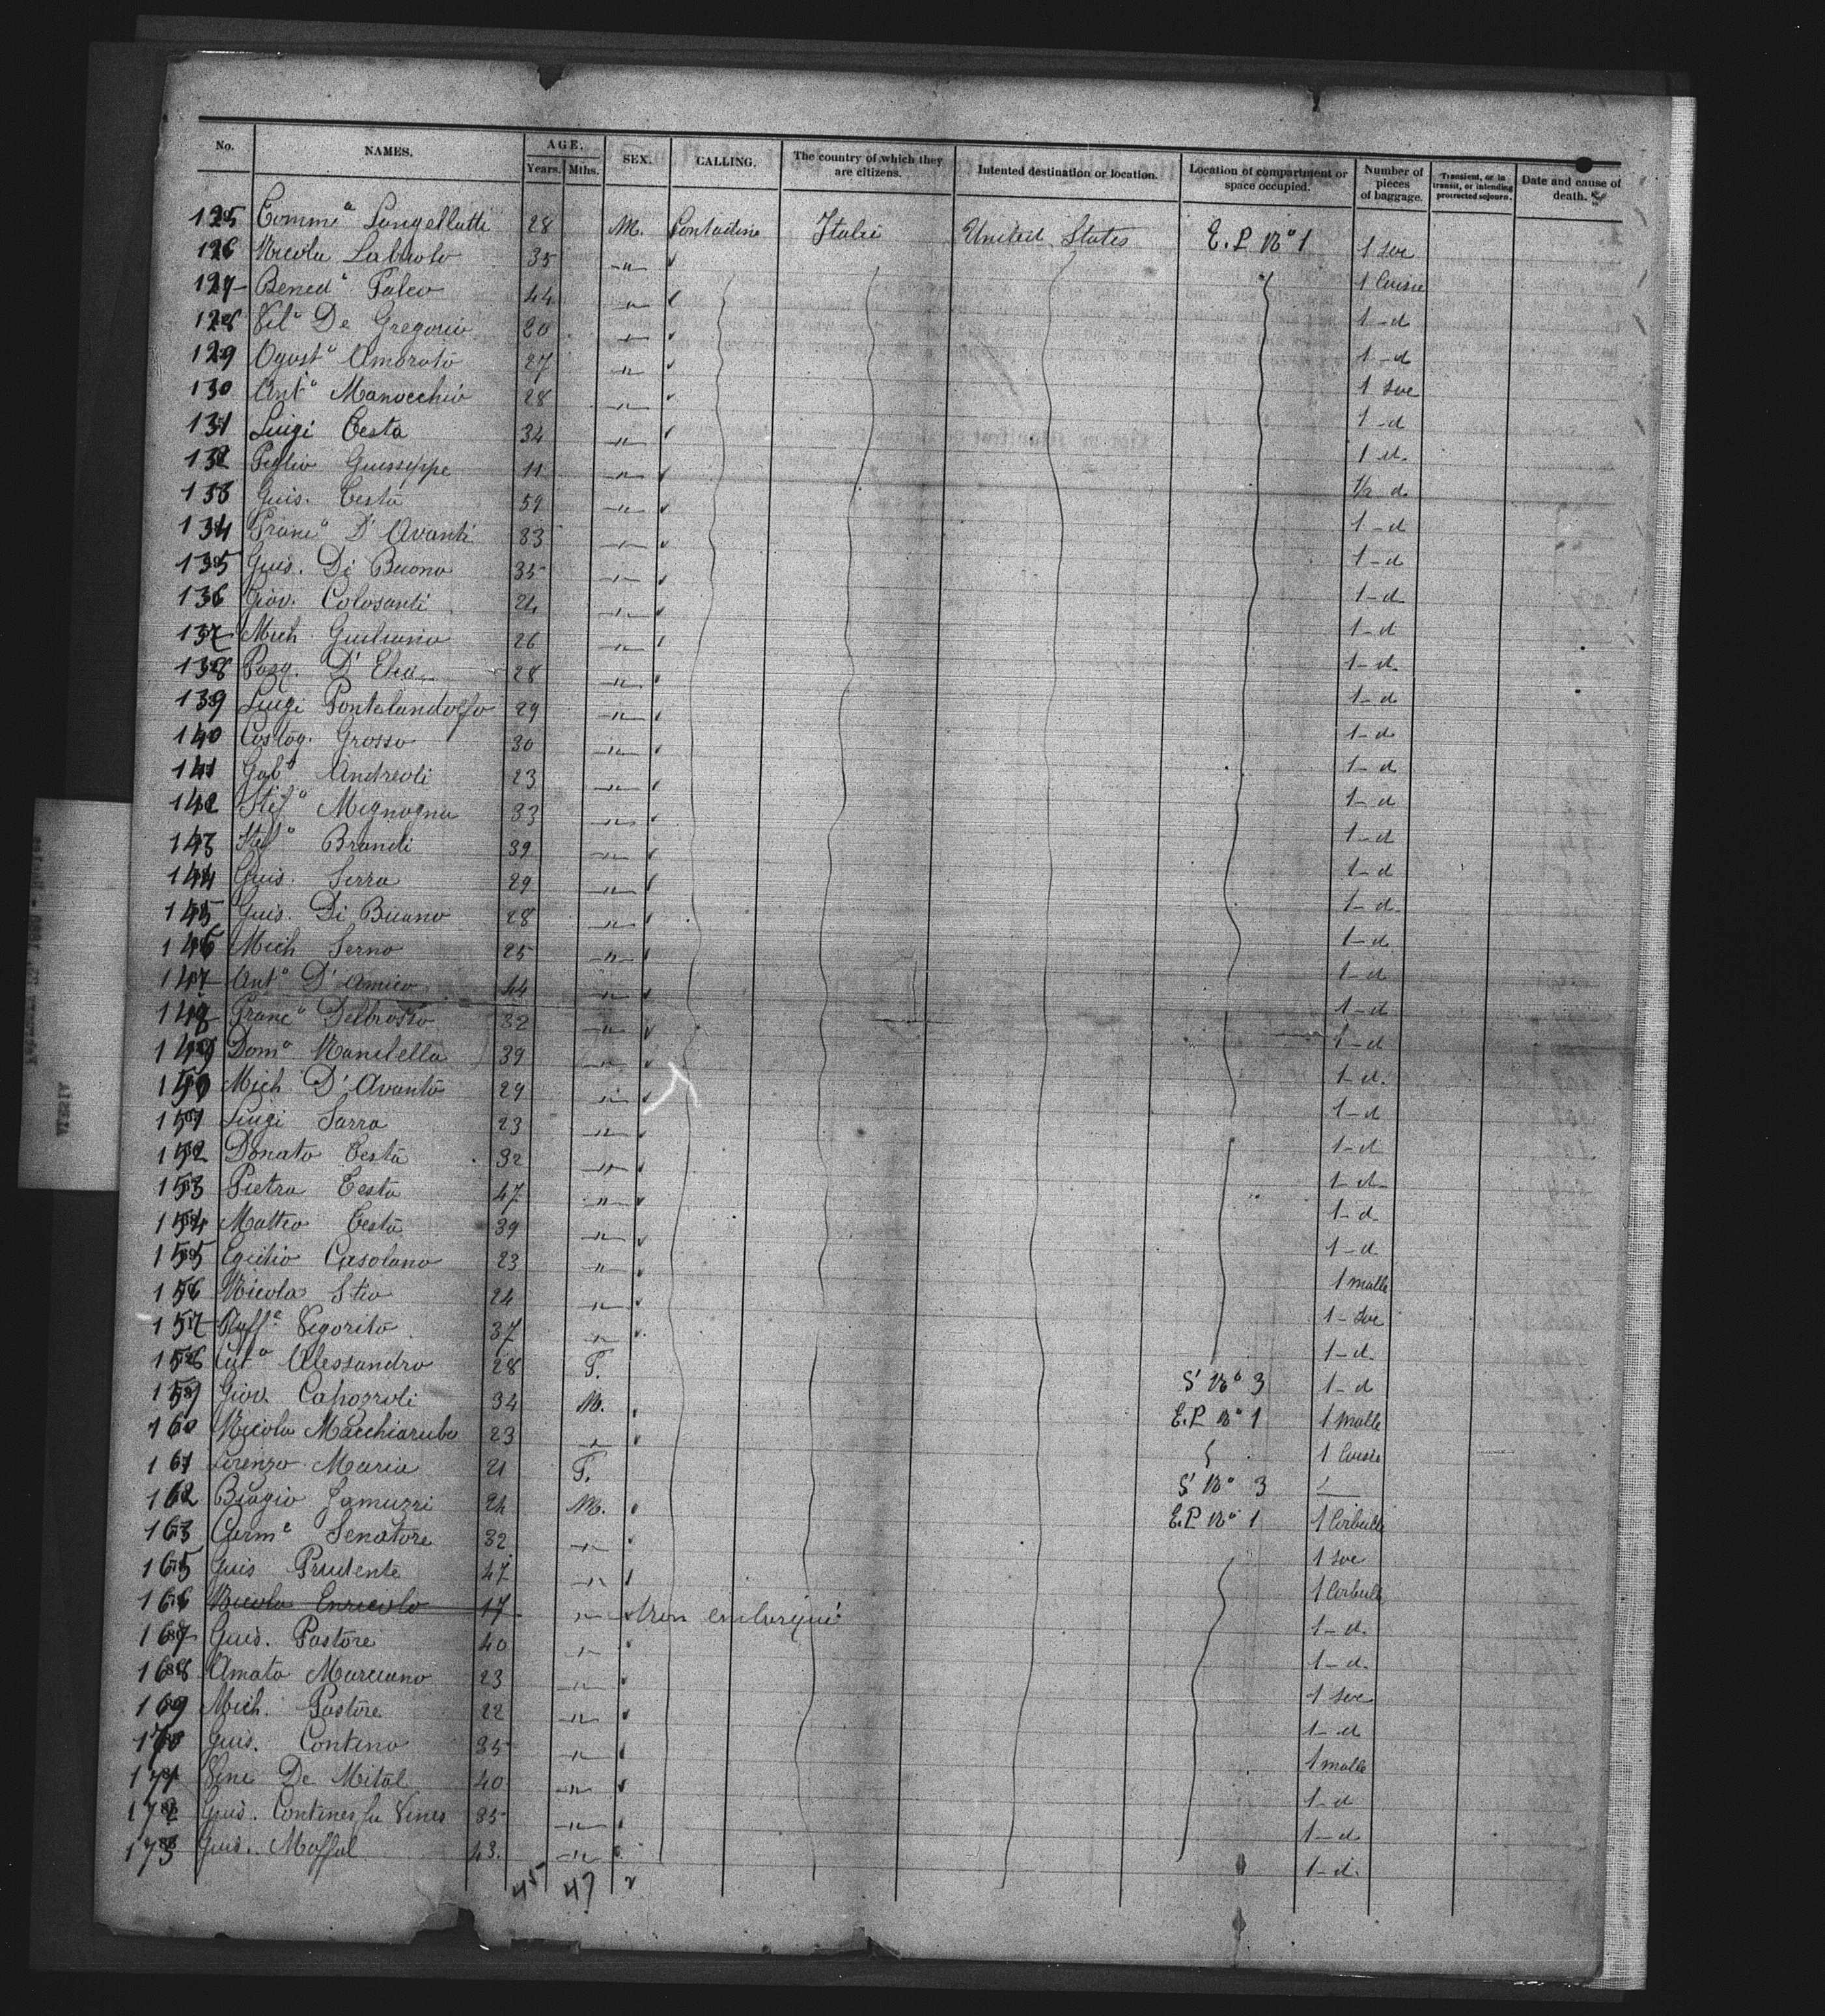 No. NAMES. AGE. Years. Mths. SEX. CALLING. The country of which they are citizens. Intented destination or location. Location of compartment or space occupied. Number of pieces of baggage. Transient, or in transit, or intending protracted sojourn. Date and cause of death.
125 28 M. Contadino Italie United States E. P. No 1 1 sac
126 Nicola 35 -"- 1 Caisse
127 Bened° Falco 44 -"- 1 - d
128 Vit° De Gregorio 20 -"- 1 - d
129 Agost° Amorato 27 -"- 1 sac
130 Ant° Manocchio 28 -"- 1 - d
131 Luigi Testa 34 -"- 1 d.
132 Giusseppe 11 -"- 1/2 d
133 Guis. Testa 59 -"- 1 - d
134 Franc° D'Avanti 33 -"- 1 - d
135 Guis. Di Buono 35 -"- 1 - d
136 Giov. Colosanti 24 -"- 1 - d
137 Mich. Giuliano 26 -"- 1 - d
138 Pasq. D'Elia 28 -"- 1 - d
139 Luigi Pontelandolfo 29 -"- 1 - d
140 Grosso 30 -"- 1 - d
141 Gab° Andreoli 23 -"- 1 - d
142 Stef° Mignogna 33 -"- 1 - d
143 Brandi 39 -"- 1 - d
144 Guis. Serra 29 -"- 1 - d
145 Guis. Di Buono 28 -"- 1 - d
146 Mich Serno 25 -"- 1 - d
147 Ant° D'Amico 44 -"- 1 - d
148 Franc° Delbrosso 32 -"- 1 - d
149 Dom° 39 -"- 1 - d.
150 Mich. D'Avanto 29 -"- 1 - d
151 Luigi Sarra 23 -"- 1 - d
152 Donato Testa 32 -"- 1 - d
153 Pietro Testa 47 -"- 1 - d
154 Matteo Testa 39 -"- 1 - d
155 Casolano 23 -"- 1 malle
156 Nicola Stio 24 -"- 1 - sac
157 Raff° Vigorito 37 -"- 1 - d.
158 Alessandro 28 F. S No 3 1 - d
159 Giov. Capozzoli 34 M. E. P. No 1 1 malle
160 Nicola Macchiarulo 23 -"- 1 Caisse
161 Lorenzo Maria 21 F. S No 3
162 Biagio Jamuzzi 24 M. E. P. No 1 1 Corbeille
163 Carm° Senatore 32 -"- 1 sac
165 Guis Prudente 47 -"- 1 Corbeille
166 Nicola Enricolo 17 -"- Non embarqué 1 - d.
167 Guis. Pastore 40 -"- 1 - d.
168 Amato Marciano 23 -"- 1 sac
169 Mich. Pastore 22 -"- 1 - d
170 Guis. Contino 35 -"- 1 malle
171 De Mital 40 -"- 1 - d
172 Guis. 35 -"- 1 - d
173 Guis. Moffal 43. -"- 1 - d.
45 47